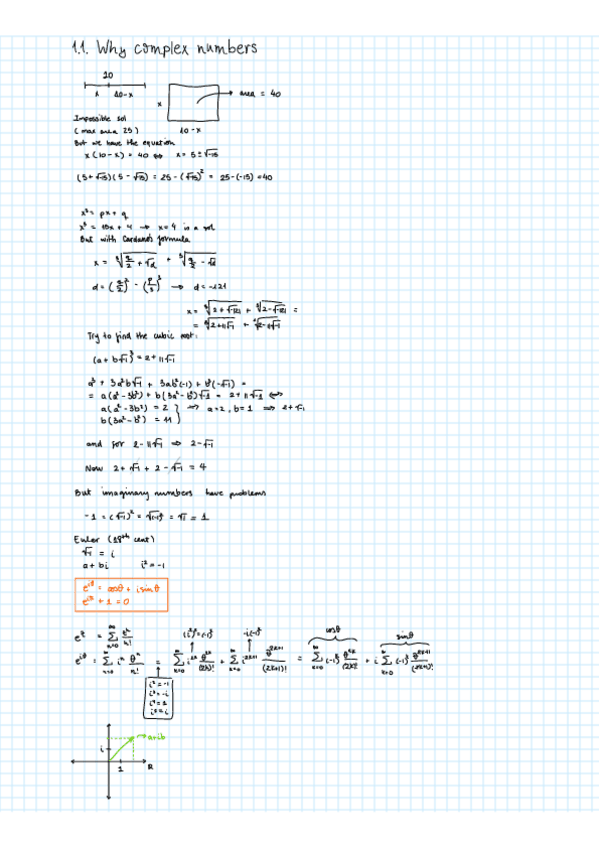 1.1. Why complex numbers
10
x 10-x
x
→ area = 40
10-x
Impossible sol
(max area 25)
But we have the equation
x(10-x) = 40 ⇔ x = 5 ± √-15
(5+√-15)(5-√-15) = 25-(√-15)² = 25-(-15) = 40
x³ = px + q
x³ = 15x + 4 → x=4 is a sol
But with Cardano's formula
x = ∛(q/2 + √d) + ∛(q/2 - √d)
d = (q/2)² - (p/3)³ → d = -121
x = ∛(2+√-121) + ∛(2-√-121) =
= ∛(2+11√-1) + ∛(2-11√-1)
Try to find the cubic root:
(a+b√-1)³ = 2+11√-1
a³ + 3a²b√-1 + 3ab²(-1) + b³(-√-1) =
= a(a²-3b²) + b(3a²-b²)√-1 = 2+11√-1 ⇔
a(a²-3b²) = 2
b(3a²-b²) = 11 } ⇒ a=2, b=1 ⇒ 2+√-1
and for 2-11√-1 ⇒ 2-√-1
Now 2+√-1 + 2-√-1 = 4
But imaginary numbers have problems
-1 = (√-1)² = √(-1)² = √1 = 1
Euler (18th cent)
√-1 = i
a+bi i² = -1
e^{iθ} = cosθ + i sinθ
e^{iπ} + 1 = 0
(i²)ᵏ=(-1)ᵏ i(-1)ᵏ cosθ sinθ
e^z = ∑_{n=0}^∞ zⁿ/n!
e^{iθ} = ∑_{n=0}^∞ iⁿ θⁿ/n! = ∑_{k=0}^∞ i^{2k} θ^{2k}/(2k)! + ∑_{k=0}^∞ i^{2k+1} θ^{2k+1}/(2k+1)! = ∑_{k=0}^∞ (-1)ᵏ θ^{2k}/(2k)! + i ∑_{k=0}^∞ (-1)ᵏ θ^{2k+1}/(2k+1)!
i² = -1
i³ = -i
i⁴ = 1
i⁵ = i
→ a+ib
i
1 R